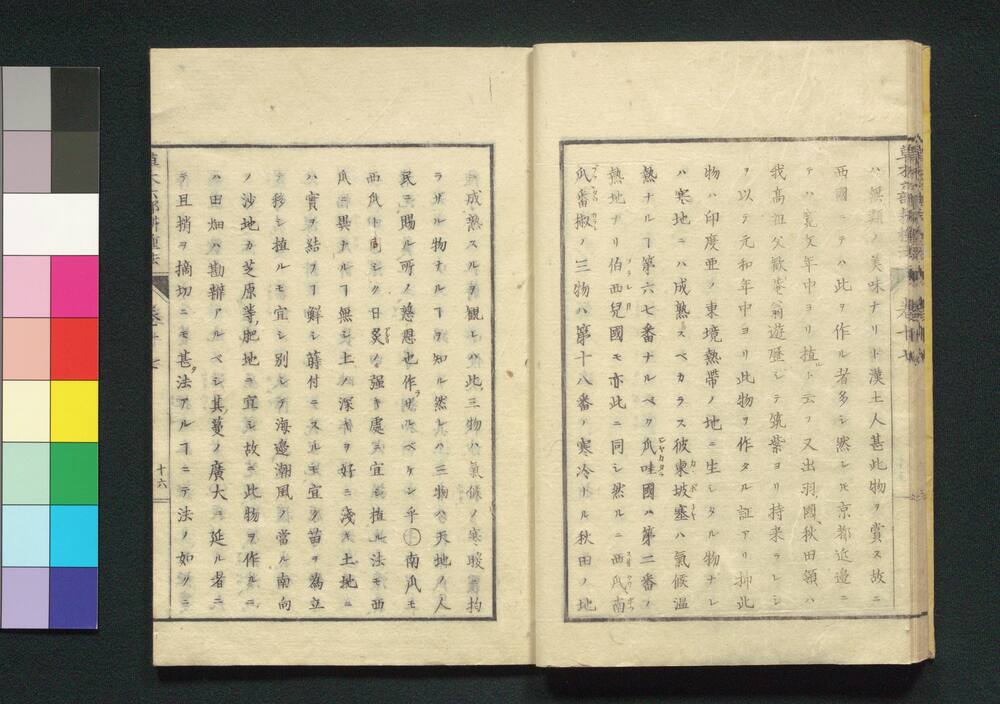 ハ無類ノ美味ナリト漢土人甚此物ヲ賞ス故ニ
西國ニテハ此ヲ作ル者多シ然レ𪜈京都近邊ニ
テハ寛文年中ヨリ植ルト云フ又出羽國秋田領ハ
我高祖父歓菴翁遊歴シテ筑紫ヨリ持来ラレシ
ヲ以テ元和年中ヨリ此物ヲ作タル証アリ抑此
物ハ印度亜ノ東境熱帶ノ地ニ生シタル物ナレ
ハ寒地ニハ成熟スベカラス彼柬坡塞ハ氣候温
熱ナルヿ第六七番ナルベク爪哇國ハ第二番ノ
熱地ナリ伯西兒國モ亦此ニ同シ然ルニ西瓜南
瓜番椒ノ三物ハ第十八番ノ寒冷ナル秋田ノ地
草木六部耕種法
卷十七
ニ成熟スルヲ觀レハ此三物ハ氣候ノ寒暖ニ拘
ラザル物ナルヿヲ知ル然レハ三物ハ天地ノ人
民ニ賜ル所ノ慈恩也作ラサルベケンヤ○南瓜モ
西瓜ト同シク日炙ノ強キ處ニ宜シ植ル法モ西
瓜ニ異ナルヿ無シ土ノ深キヲ好ミ淺キ土地ニ
ハ實ヲ結フヿ鮮シ蒔付ニスルモ宜ク苗ヲ為立
テ移シ植ルモ宜シ別シテ海邊潮風ノ當ル南向
ノ沙地カ芝原等ノ肥地ニ宜シ故ニ此物ヲ作ルニ
ハ田畑ハ勘辨アルベシ其蔓ノ廣大ニ延ル者ニ
テ且梢ヲ摘切ニモ甚タ法アルヿニテ法ノ如クニ
草木六部耕種法
卷十七
十六